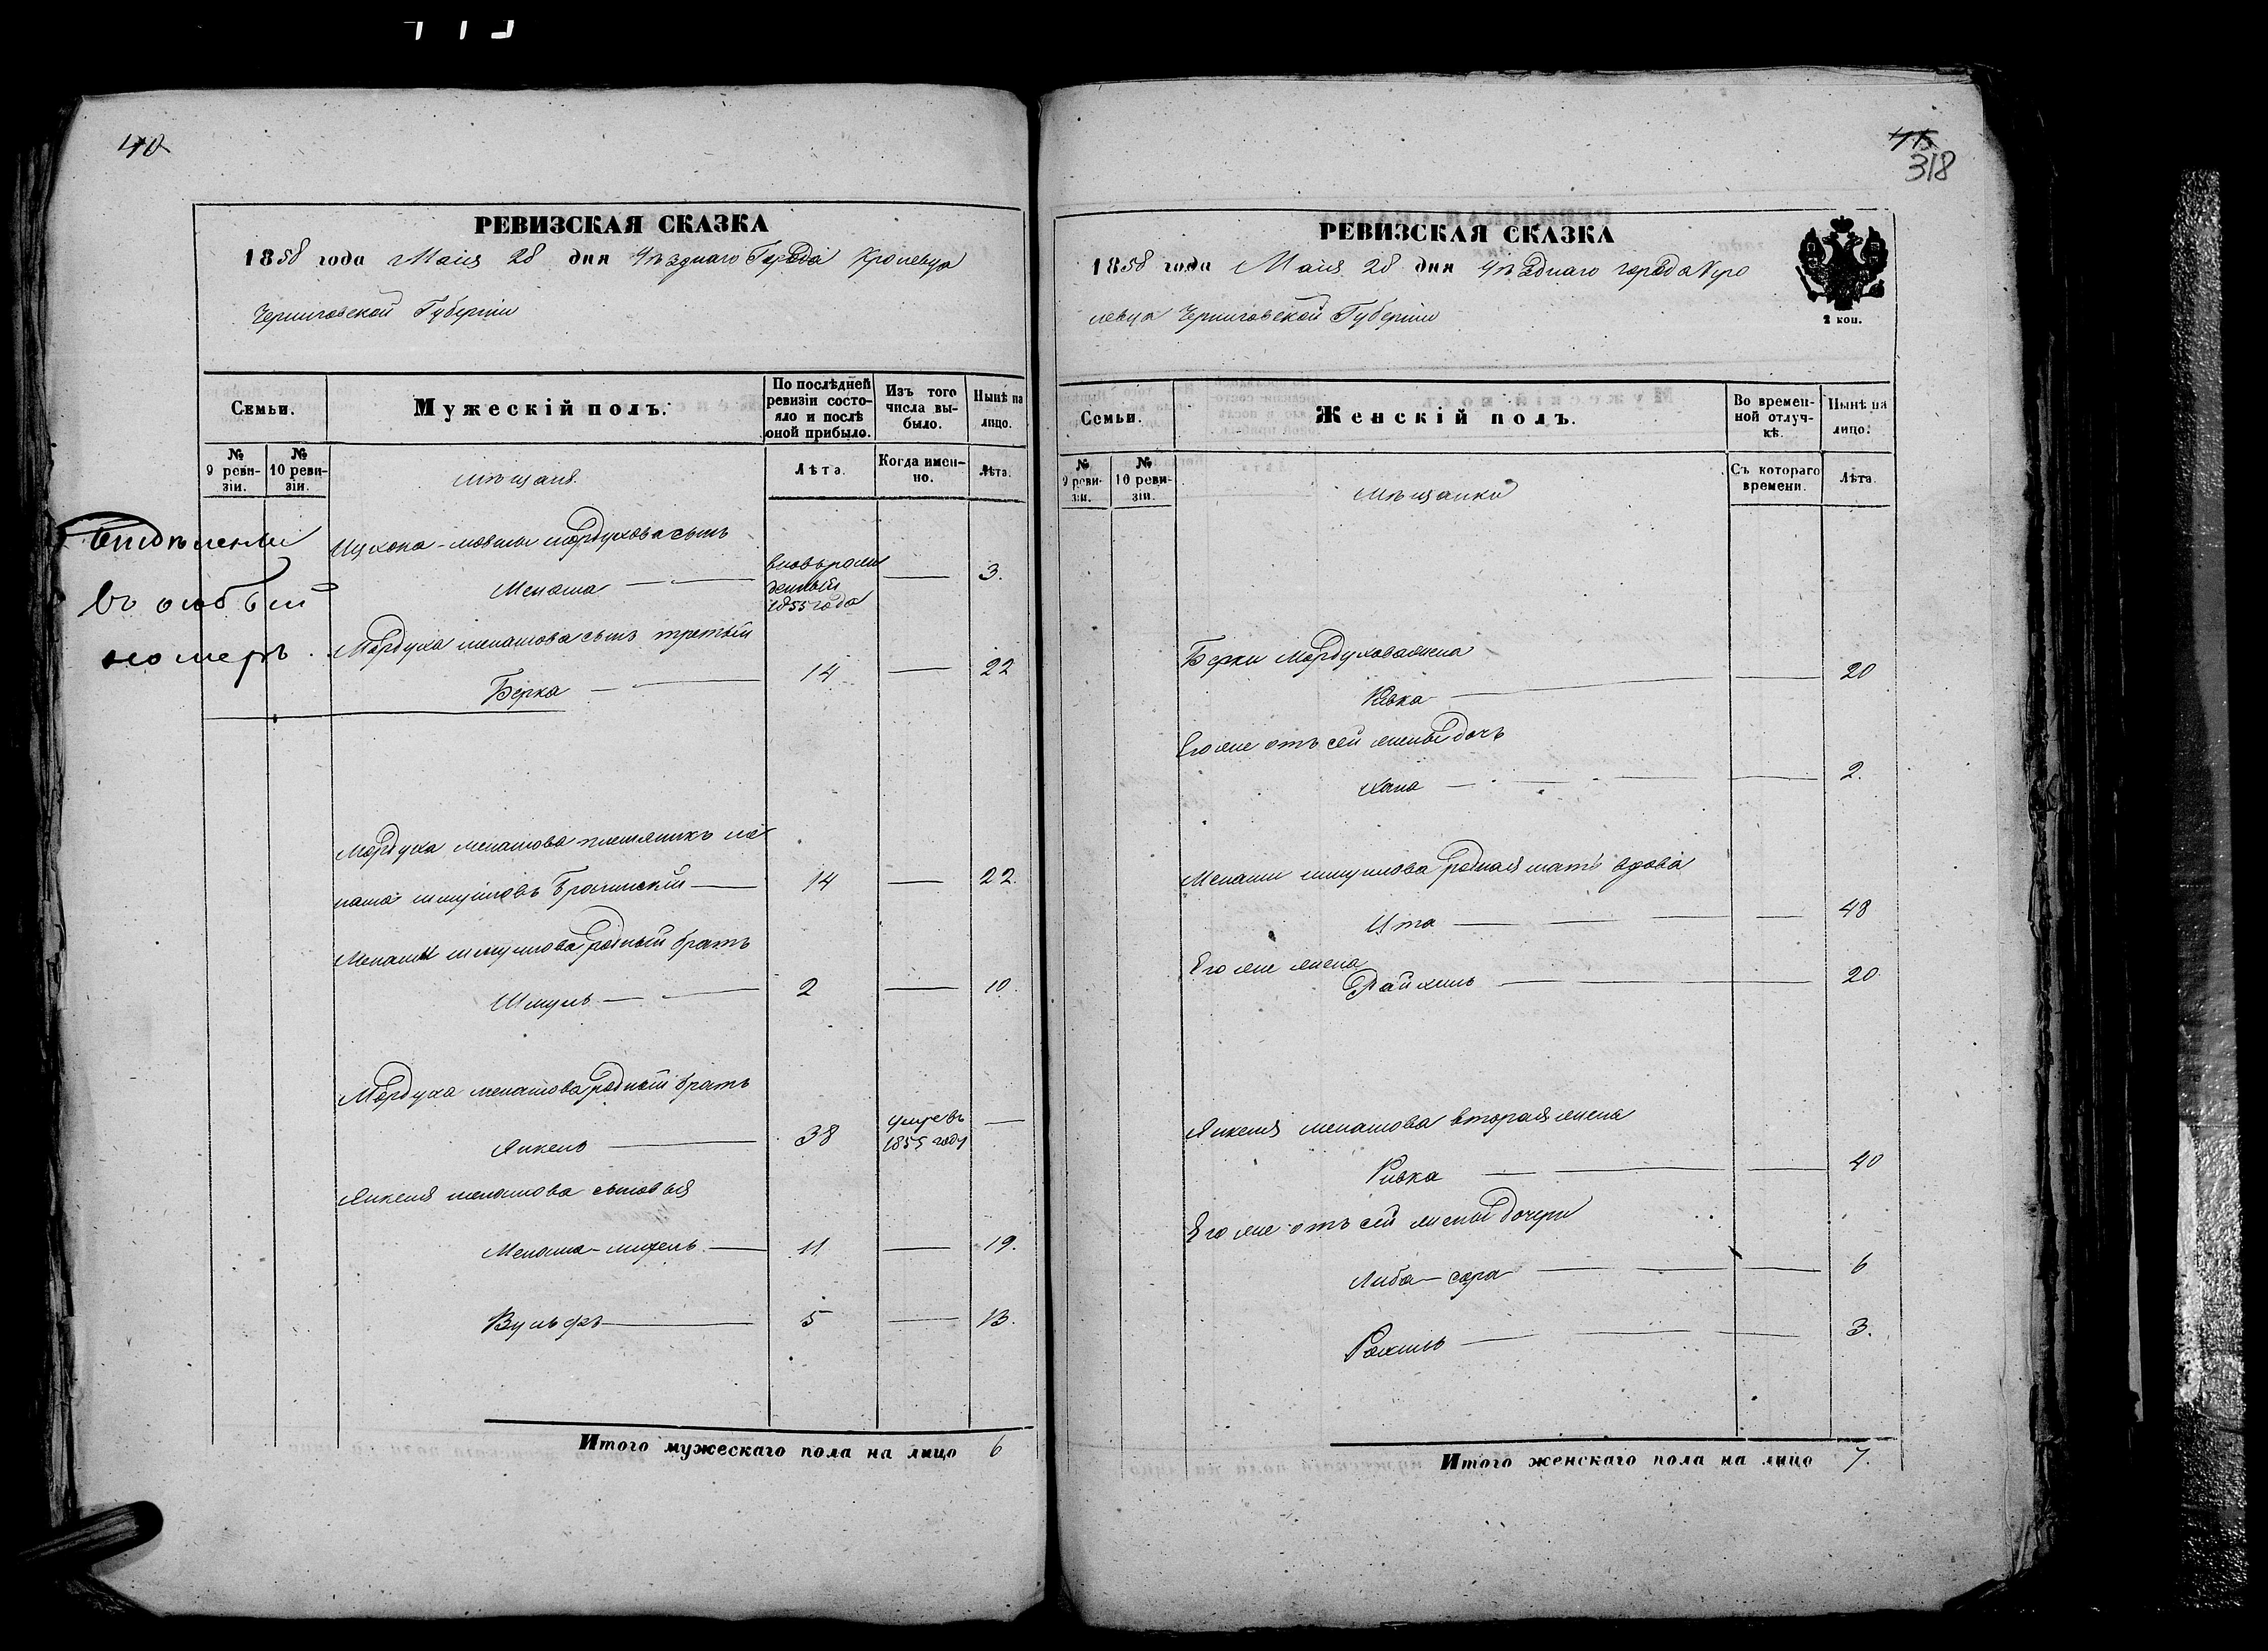 40
РЕВИЗСКАЯ СКАЗКА
1858 года Маія 28 дня Уѣзднаго Города Кролевца
Черниговской Губерніи
Семьи.
Мужескій полъ.
По послѣдней ревизіи состояло и послѣ оной прибыло.
Изъ того числа выбыло.
Нынѣ на лицо.
№ 9 ревизіи.
№ 10 ревизіи.
мѣщане.
Лѣта.
Когда именно.
Лѣта.
въ особый
номеръ.
Мордухова сынъ
Менаша
вновьрож
денный
1855 года
3.
Мордуха менашова сынъ третьій
Берка 14 22
Мордуха менашова племяникъ ме
наша шмуиловъ 14 22.
Менаши шмуилова родный братъ
Шмуль 2 10.
Мордуха менашова родный братъ
Янкель 38 умре въ
1855 году
Янкеля менашова сыновья
Менаша- 11 19.
Вульфъ 5 13.
Итого мужескаго пола на лицо 6
318
РЕВИЗСКАЯ СКАЗКА
1858 года Маія 28 дня Уѣзднаго города Кро
левца Черниговской Губерніи
2 коп.
Семьи.
Женскій полъ.
Во временной отлучкѣ.
Нынѣ на лицо.
№ 9 ревизіи.
№ 10 ревизіи.
мѣщанки
Съ котораго времени.
Лѣта.
Берки Мордухова жена
20
Его же отъ сей жены дочь
Хана 2.
Менаши шмуилова родная мать вдова
Ита 48
Его же жена
20
Янкеля менашова вторая жена
Ривка 40
Его же отъ сей жены дочери
Либа-сора 6
Рохиль 3.
Итого женскаго пола на лицо 7.